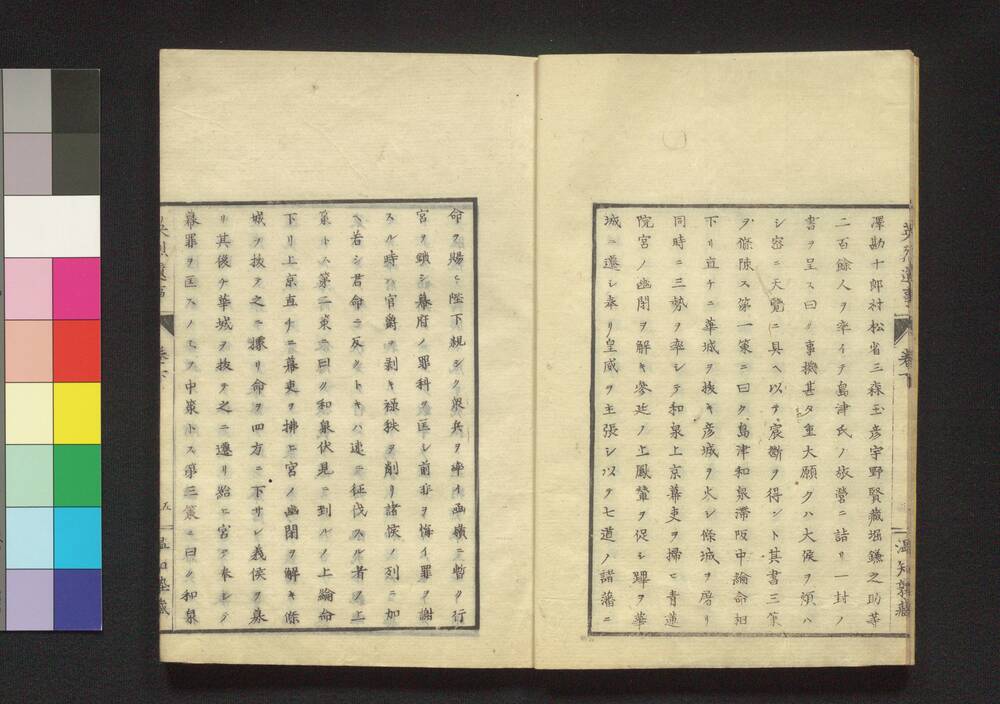 英烈遺事 卷下
澤勘十郎村松省三森玉彦宇野賢藏堀鎌之助等
二百餘人ヲ率イテ島津氏ノ旅營ニ詣リ一封ノ
書ヲ呈ス曰ク事機甚タ重大願クハ大俟ヲ須ハ
シ密ニ天覽ニ具ヘ以テ宸斷ヲ得ント其書三策
ヲ條陳ス第一策ニ曰ク島津和泉滯阪中綸命相
下リ直チニ華城ヲ拔キ彦城ヲ火シ條城ヲ屠リ
同時ニ三勢ヲ率シテ和泉上京幕吏ヲ掃ヒ青蓮
院宮ノ幽閉ヲ解キ參廷ノ上鳳輦ヲ促シ蹕ヲ華
城ニ遷シ奉リ皇威ヲ主張シ以テ七道ノ諸藩ニ
命ヲ賜ヒ陛下親シク衆兵ヲ率イ函嶺ニ暫ク行
宮ヲ鎖シ幕府ノ罪科ヲ匡シ前非ヲ悔イ罪ヲ謝
スル時ハ官爵ヲ剥キ祿秩ヲ削リ諸侯ノ列ニ加
ヘ若シ君命ニ反クトキハ速ニ征伐スル者ヲ上
策トス第二策ニ曰ク和泉伏見ニ到ルノ上綸命
下リ上京直チニ幕吏ヲ拂ヒ宮ノ幽閉ヲ解キ條
城ヲ拔テ之ニ據リ命ヲ四方ニ下サレ義侯ヲ募
リ其後チ華城ヲ拔テ之ニ遷リ給ヒ宮ヲ奉シテ
幕罪ヲ匡スノヿヲ中策トス第三策ニ曰ク和泉